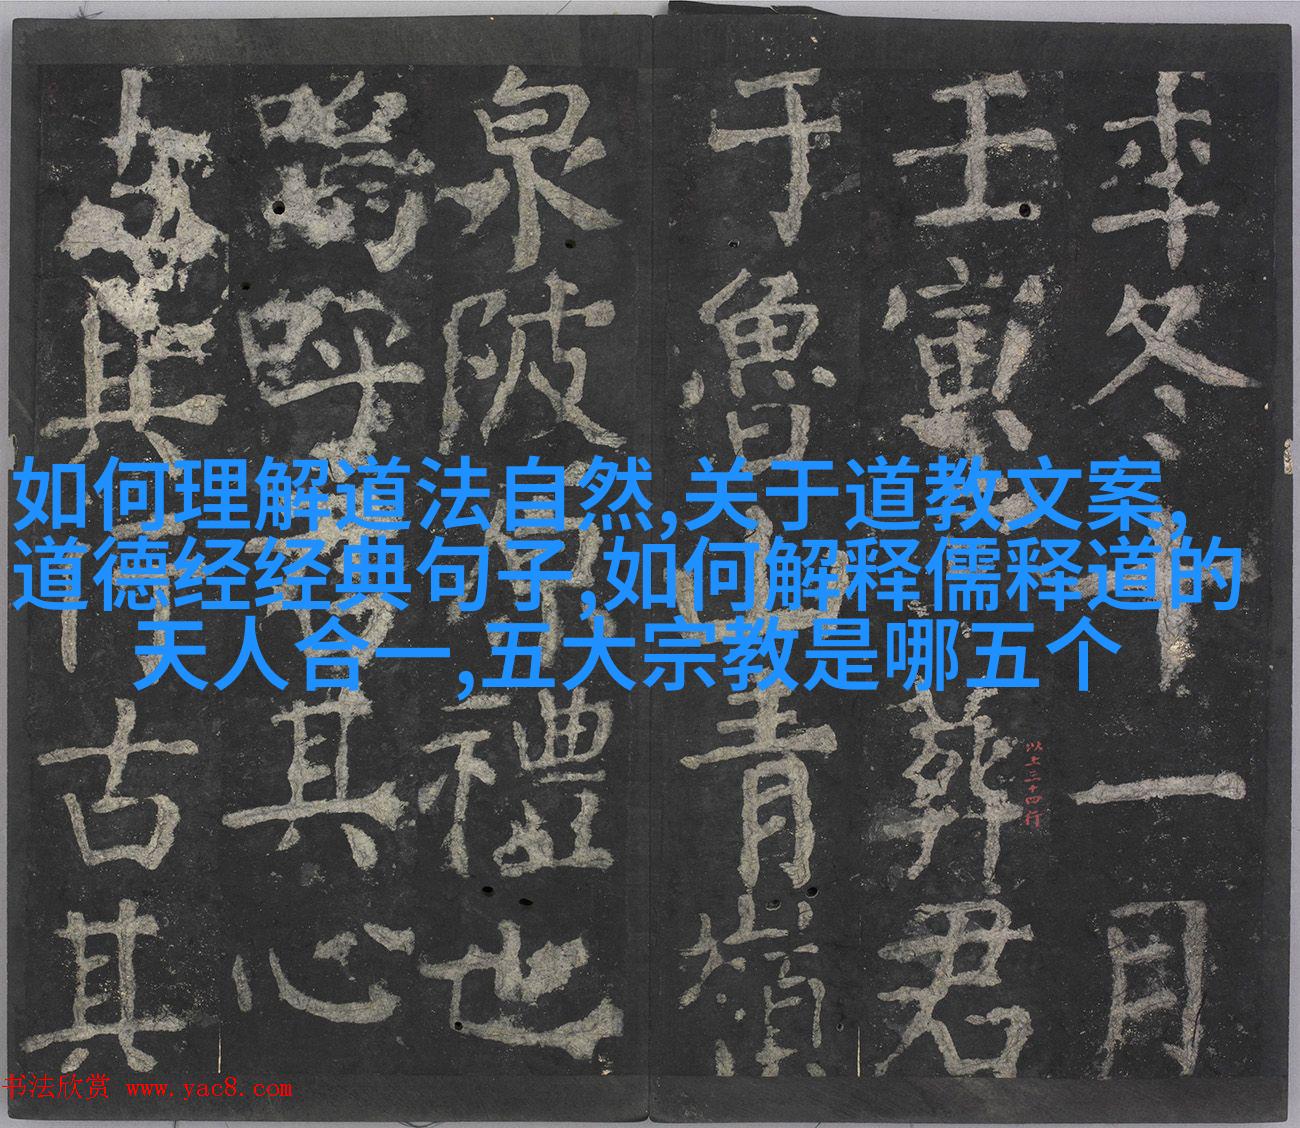 如何理解道法自然,关于道教文案,
道德经经典句子,如何解释儒释道的
天人合一,五大宗教是哪五个
年冬十一月
壬寅葬君
以上三十四行
于魯山青嶺
泉陂原禮也
嗚呼君其心
古其行古其
书法欣赏 www.yac8.com